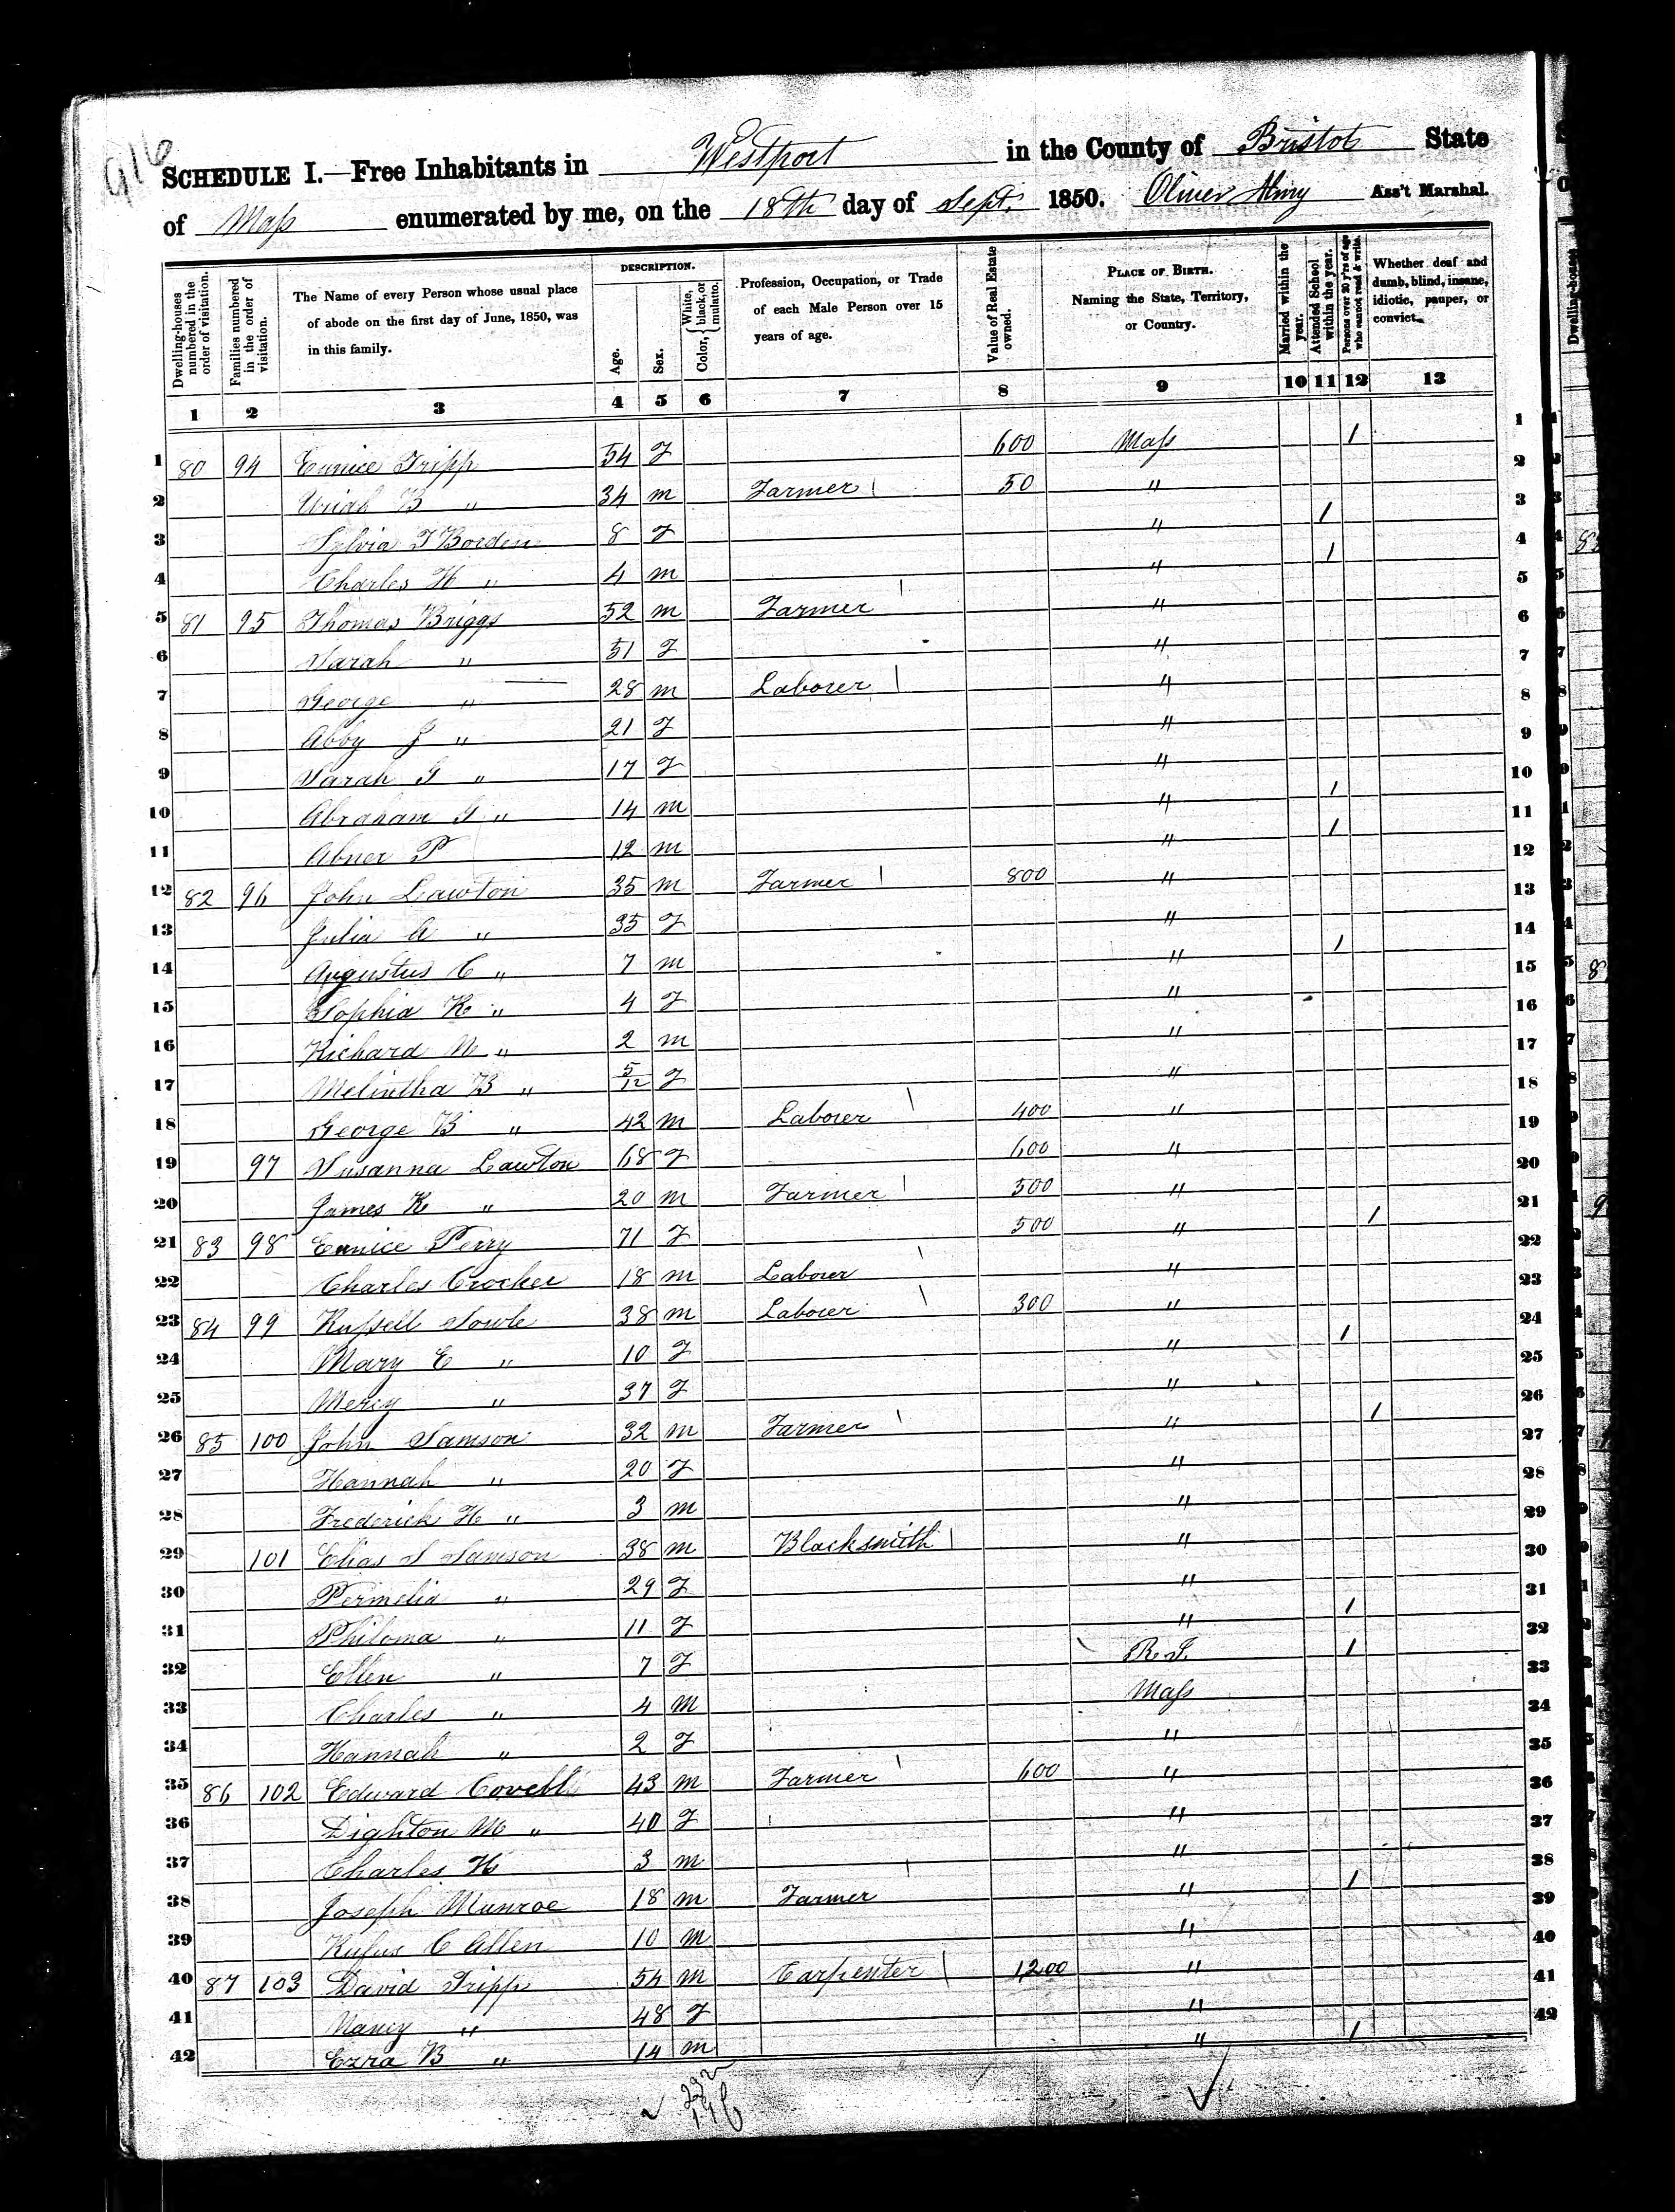 916
SCHEDULE I.—Free Inhabitants in Westport in the County of Bristol State
of Mass enumerated by me, on the 18th day of Sept. 1850. Oliver Ass't Marshal.
Dwelling-houses numbered in the order of visitation.
Families numbered in the order of visitation.
The Name of every Person whose usual place of abode on the first day of June, 1850, was in this family.
DESCRIPTION.
Age.
Sex.
Color, { White, black, or mulatto.
Profession, Occupation, or Trade of each Male Person over 15 years of age.
Value of Real Estate owned.
PLACE OF BIRTH. Naming the State, Territory, or Country.
Married within the year.
Attended School within the year.
Persons over 20 y'rs of age who cannot read & write.
Whether deaf and dumb, blind, insane, idiotic, pauper, or convict.
1 2 3 4 5 6 7 8 9 10 11 12 13
1 80 94 Eunice Tripp 54 F 600 Mass 1 1
2 Uriah B " 34 m Farmer 50 " 2
3 Sylvia T Borden 8 F " 1 3
4 Charles H " 4 m " 1 4
5 81 95 Thomas Briggs 52 m Farmer " 5
6 Sarah " 51 F " 6
7 George " 28 m Laborer " 7
8 Abby J " 21 F " 8
9 Sarah G " 17 F " 9
10 Abraham G " 14 m " 1 10
11 Abner P 12 m " 1 11
12 82 96 John Lawton 35 m Farmer 800 " 12
13 Julia A " 35 F " 13
14 Augustus C " 7 m " 1 14
15 Sophia K " 4 F " 15
16 Richard M " 2 m " 16
17 Melintha B " 5/12 F " 17
18 George B " 42 m Laborer 400 " 18
19 97 Susanna Lawton 68 F 600 " 19
20 James K " 20 m Farmer 500 " 20
21 83 98 Eunice Perry 71 F 500 " 1 21
22 Charles Crocker 18 m Laborer " 22
23 84 99 Russell Sowle 38 m Laborer 300 " 23
24 Mary E " 10 F " 1 24
25 Mercy " 37 F " 25
26 85 100 John Samson 32 m Farmer " 1 26
27 Hannah " 20 F " 27
28 Frederick H " 3 m " 28
29 101 Elias S Samson 38 m Blacksmith " 29
30 Permelia " 29 F " 30
31 Philoma " 11 F " 1 31
32 Ellen " 7 F R.I. 1 32
33 Charles " 4 m Mass 33
34 Hannah " 2 F " 34
35 86 102 Edward Covell 43 m Farmer 600 " 35
36 Dighton M " 40 F " 36
37 Charles H 3 m " 37
38 Joseph Munroe 18 m Farmer " 1 38
39 Rufus C Allen 10 m " 39
40 87 103 David Tripp 54 m Carpenter 1200 " 40
41 Nancy " 48 F " 41
42 Ezra B " 14 m " 1 42